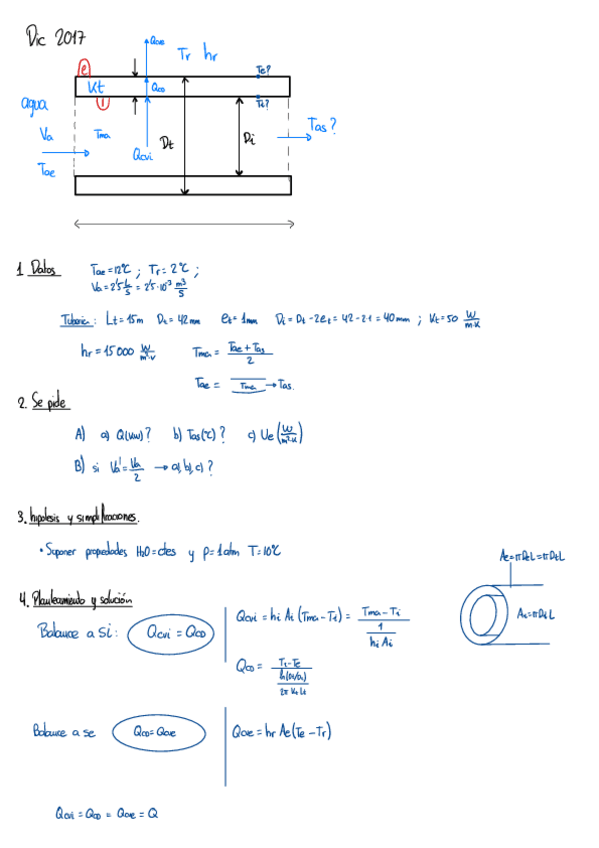 Dic 2017
Qcve
Tr hr
e
Te?
Kt
Qco
i
Ti?
agua
Va
Tma
Dt
Di
Tas?
Qcvi
Tae
1. Datos
Tae=12ºC ; Tr=2ºC ;
Va=2'5 L/s = 2'5·10⁻³ m³/s
Tuberia: Lt=15m Dt=42mm et=1mm Di=Dt-2et=42-2·1=40mm ; Kt=50 W/m·K
hr=15000 W/m²·K Tma = (Tae+Tas)/2
Tae = Tma → Tas.
2. Se pide
A) a) Q(kW)? b) Tas(ºC)? c) Ue(W/m²·K)
B) si Va' = Va/2 → a), b), c)?
3. hipotesis y simplificaciones.
• Suponer propiedades H2O=ctes y P=1atm T=10ºC
Ae=πDeL=πDtL
4. Planteamiento y solución
Balance a Si: Qcvi = Qco
Qcvi = hi Ai (Tma-Ti) = (Tma-Ti)/(1/(hi Ai))
Ai=πDiL
Qco = (Ti-Te)/(ln(Dt/Di)/(2π Kt Lt))
Balance a se Qco=Qcve Qcve = hr Ae(Te-Tr)
Qcvi = Qco = Qcve = Q